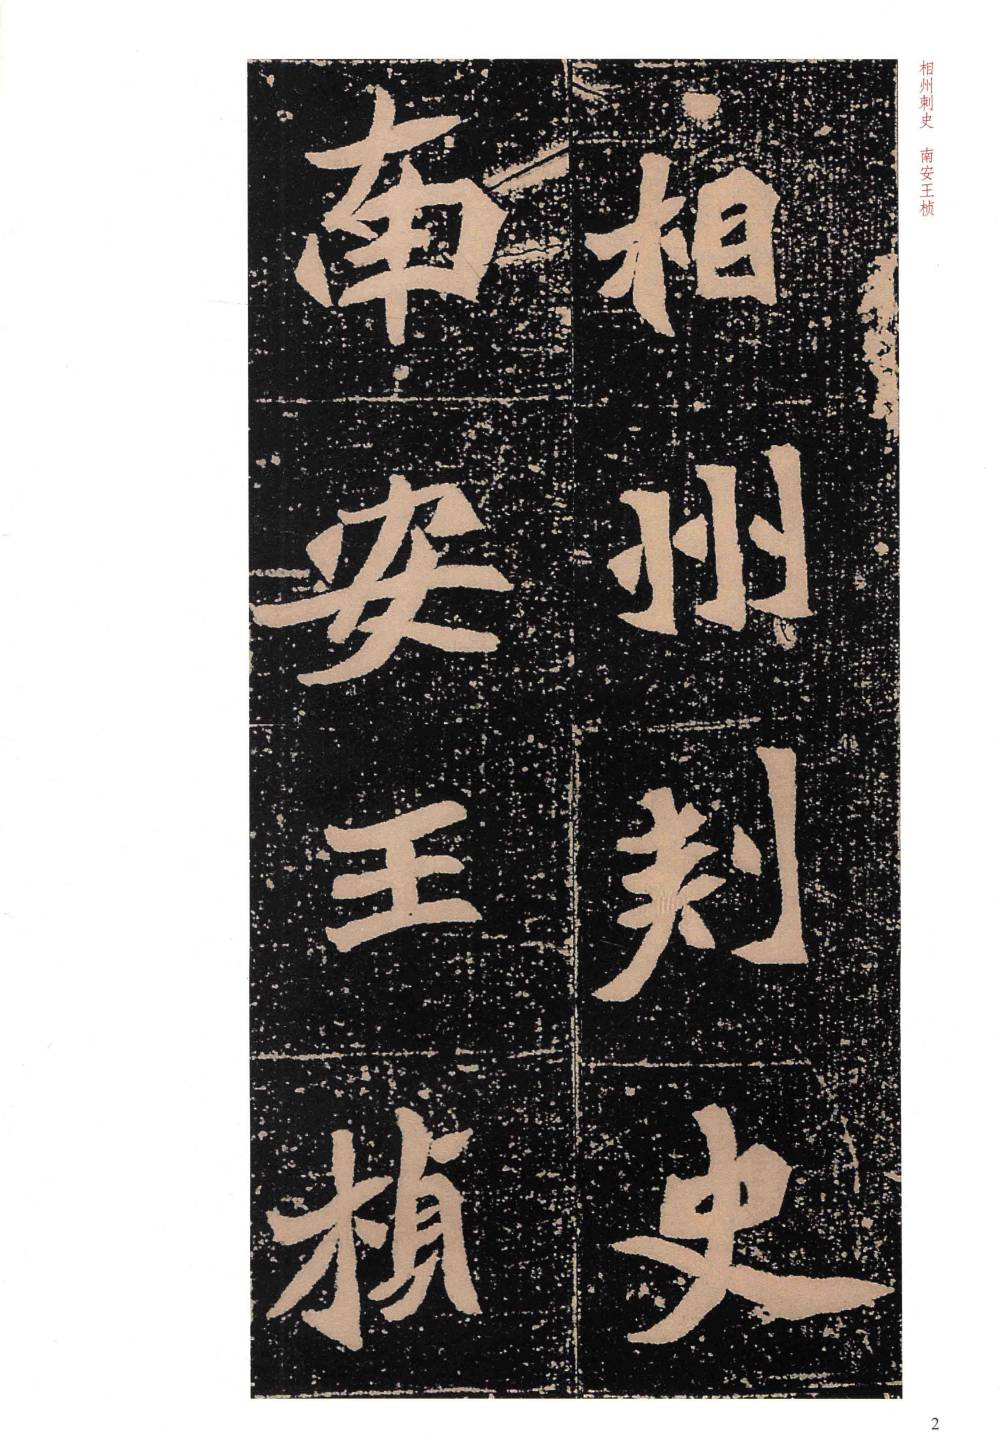 相州刺史　南安王桢
相州刺史
南安王楨
2